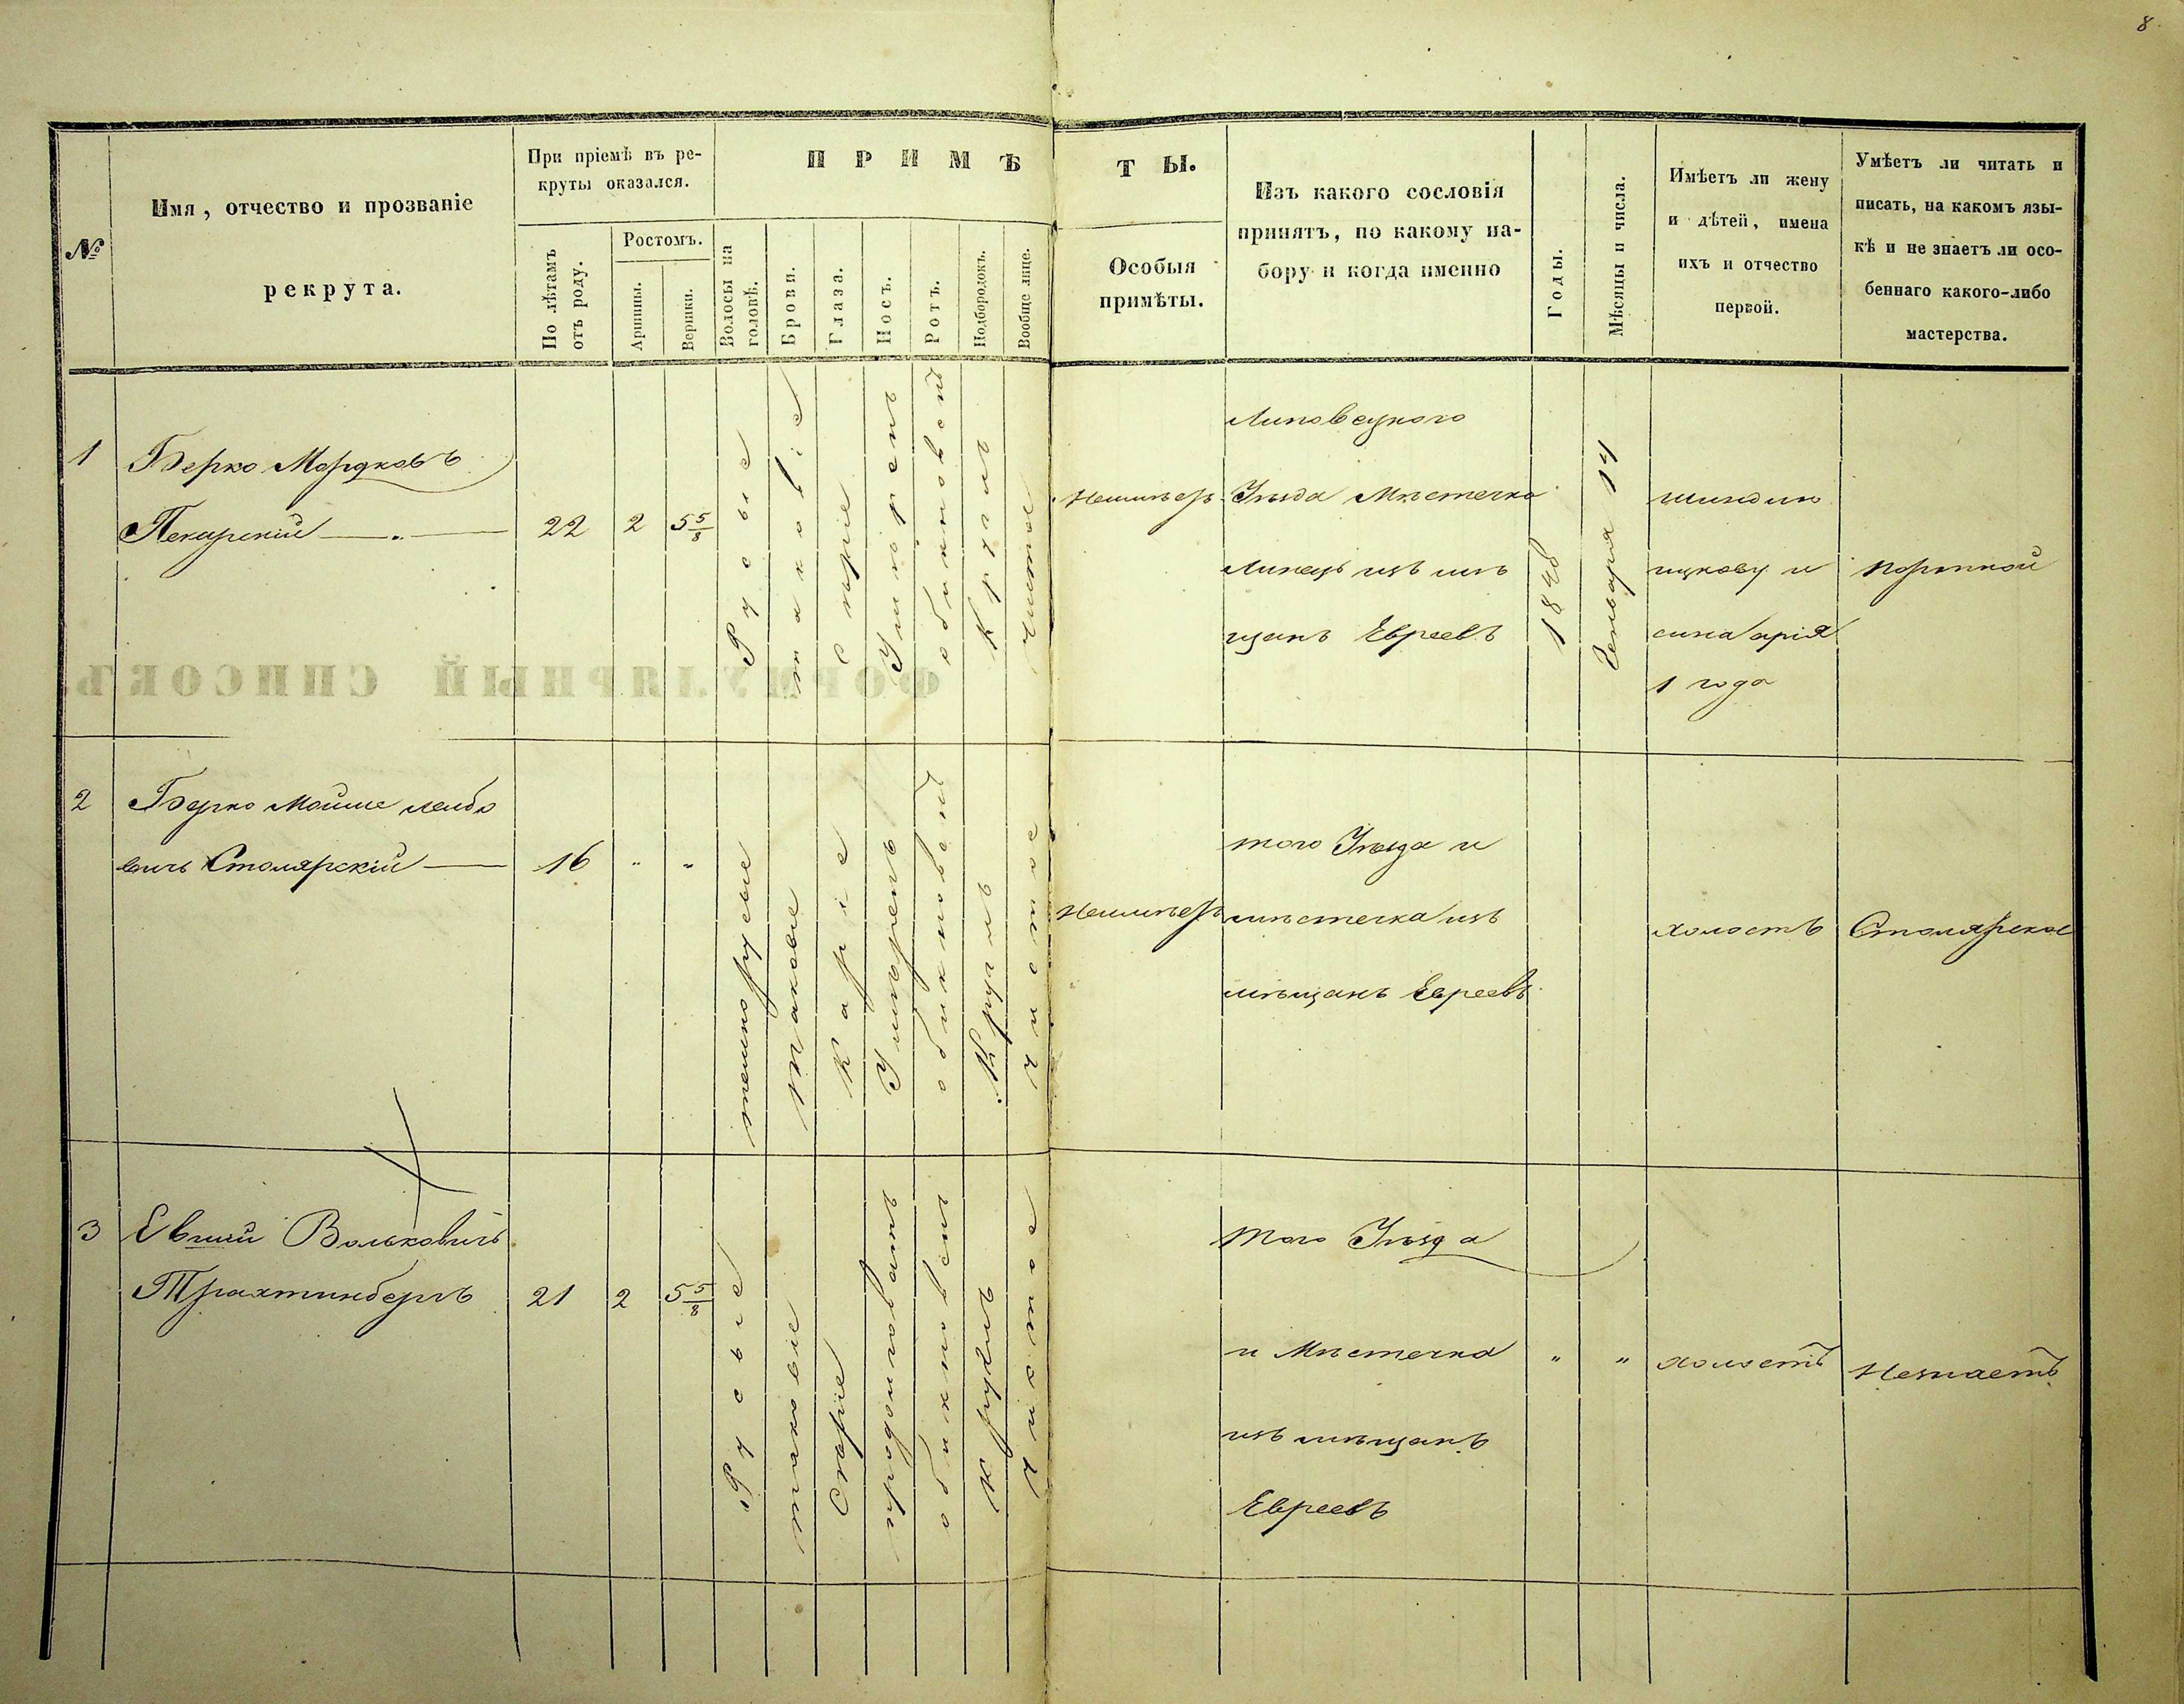 8
№
Имя, отчество и прозваніе
рекрута.
При пріемѣ въ ре-
круты оказался.
По лѣтамъ
отъ роду.
Ростомъ.
Аршины.
Вершки.
ПРИМѢ
ТЫ.
Волосы на
головѣ.
Брови.
Глаза.
Носъ.
Ротъ.
Подбородокъ.
Вообще лице.
Особыя
примѣты.
Изъ какого сословія
принятъ, по какому на-
бору и когда именно
Годы.
Мѣсяцы и числа.
Имѣетъ ли жену
и дѣтей, имена
ихъ и отчество
первой.
Умѣетъ ли читать и
писать, на какомъ язы-
кѣ и не знаетъ ли осо-
беннаго какого-либо
мастерства.
1
Берко Мордковъ
Пекарскій
22
2
5 5/8
Русые
таковіе
Умѣренъ
обикновенъ
Круглъ
чистое
Липовецкого
Уѣзда Мѣстечка
Линецъ изъ мѣ
щанъ Евреевъ
1848
Генваря 14
ицкову и
сина арія
1 года
портной
ФОРМУЛЯРНЫЙ СПИСОКЪ
2
Берко Мойше лейбо
вичъ Столярскій
16
"
"
темнорусые
таковые
Каріе
Умѣренъ
обикновенъ
Круглъ
чистое
того Уѣзда и
мѣстечка изъ
мѣщанъ Евреевъ
холостъ
Столярское
3
Волковичъ
Трахтинбергъ
21
2
5 5/8
Русые
таковые
Скаріе
продолговатъ
обикновенъ
Круглъ
Чистое
того Уѣзда
и Мѣстечка
изъ мѣщанъ
Евреевъ
"
"
холостъ
Незнаетъ